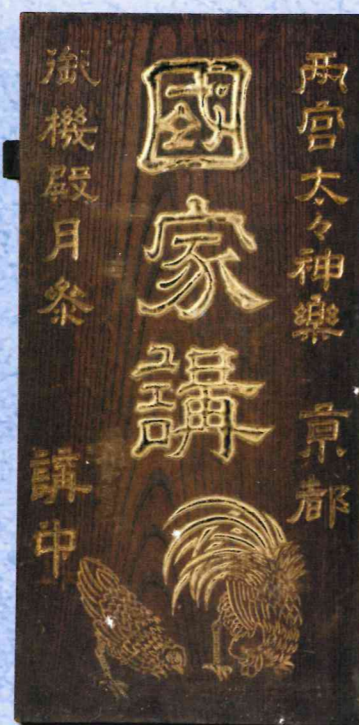 両宮太々神樂 京都
國家講
御機殿月参 講中